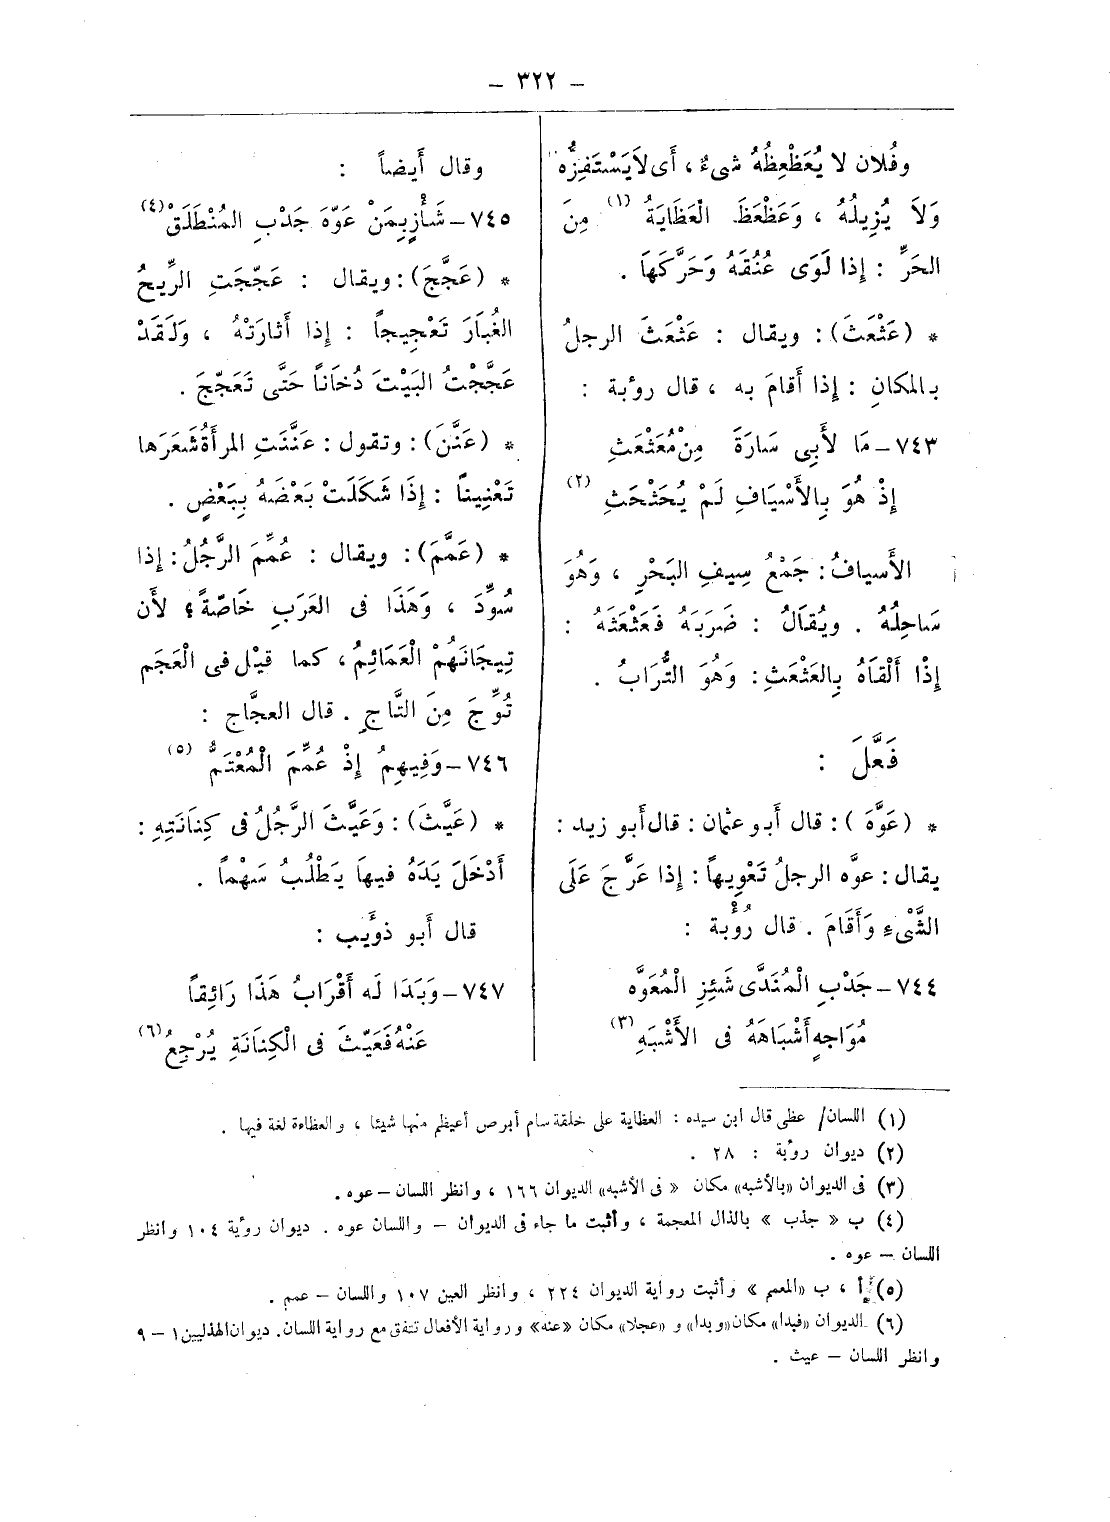 – ٣٢٢ –
وفُلان لا يُعَظْعِظُهُ شىءٌ ، أَى لاَ يَسْتَفِزُّه
وَلاَ يُزِيلُهُ ، وَعَظْعَظَ الْعَظَايَةُ (١) مِنَ
الحَرِّ : إِذا لَوَى عُنُقَهُ وَحَرَّكَهَا .
* (عَثْعَثَ) : ويقال : عَثْعَثَ الرجلُ
بالمكانِ : إِذا أَقامَ به ، قال رؤبة :
٧٤٣ – مَا لأَبِى سَارَةَ مِنْ مُعَثْعَثِ
إِذْ هُوَ بِالأَسْيَافِ لَمْ يُحَثْحَثِ (٢)
الأَسيافُ : جَمْعُ سِيفِ البَحْرِ ، وَهُوَ
سَاحِلُهُ . ويُقَالُ : ضَرَبَهُ فَعَثْعَثَهُ :
إِذْا أَلْقَاهُ بِالعَثْعَثِ : وَهُوَ التُّرَابُ .
فَعَّلَ :
* (عَوَّهَ) : قال أَبو عثمان : قال أَبو زيد :
يقال : عوَّه الرجلُ تَعْوِيهاً : إِذا عَرَّجَ عَلَى
الشَّىْءِ وَأَقَامَ . قال رُؤْبة :
٧٤٤ – جَدْبِ الْمُنَدَّى شَئِزِ الْمُعَوَّه
مُوَاجِهٍ أَشْبَاهَهُ فى الأَشْبَهِ (٣)
وقال أَيضاً :
٧٤٥ – شَأْزٍ بِمَنْ عَوَّهَ جَدْبِ المُنْطَلَقْ (٤)
* (عَجَّجَ) : ويقال : عَجَّجَتِ الرِّيحُ
الغُبَارَ تَعْجِيجاً : إِذا أَثارَتْهُ ، وَلَقَدْ
عَجَّجْتُ البَيْتَ دُخَاناً حَتَّى تَعَجَّجَ .
* (عَنَّنَ) : وتقول : عَنَّنَتِ المرأَةُ شَعَرَها
تَعْنِيناً : إِذَا شَكَلَتْ بَعْضَهُ بِبَعْضٍ .
* (عَمَّمَ) : ويقال : عُمِّمَ الرَّجُلُ : إِذا
سُوِّدَ ، وَهَذَا فى العَرَبِ خَاصَّةً ؛ لأَن
تِيجَانَهُمْ الْعَمَائِمُ ، كما قيْل فى الْعَجَم
تُوِّجَ مِنَ التَّاجِ . قال العجَّاج :
٧٤٦ – وَفِيهِمُ إِذْ عُمِّمَ الْمُعْتَمُّ (٥)
* (عَيَّثَ) : وَعَيَّثَ الرَّجُلُ فى كِنَانَتِهِ :
أَدْخَلَ يَدَهُ فيهَا يَطْلُبُ سَهْماً .
قال أَبو ذؤَيب :
٧٤٧ – وَبَدَا لَه أَقْرَابُ هَذَا رَائِغاً
عَنْهُ فَعَيَّثَ فى الْكِنَانَةِ يُرْجِعُ (٦)
(١) اللسان/ عظى قال ابن سيده : العظاية على خلقة سام أبرص أعيظم منها شيئا ، والعظاءة لغة فيها .
(٢) ديوان رؤبة : ٢٨ .
(٣) فى الديوان «بالأشبه» مكان « فى الأشبه» الديوان ١٦٦ ، وانظر اللسان – عوه .
(٤) ب « جذب » بالذال المعجمة ، وأثبت ما جاء فى الديوان – واللسان عوه . ديوان رؤبة ١٠٤ وانظر
اللسان – عوه .
(٥) أ ، ب «المعمم » وأثبت رواية الديوان ٢٢٤ ، وانظر العين ١٠٧ واللسان – عمم .
(٦) الديوان «فبدا» مكان «وبدا» و «عجلا» مكان «عنه» ورواية الأفعال تتفق مع رواية اللسان. ديوان الهذليين ١ – ٩
وانظر اللسان – عيث .